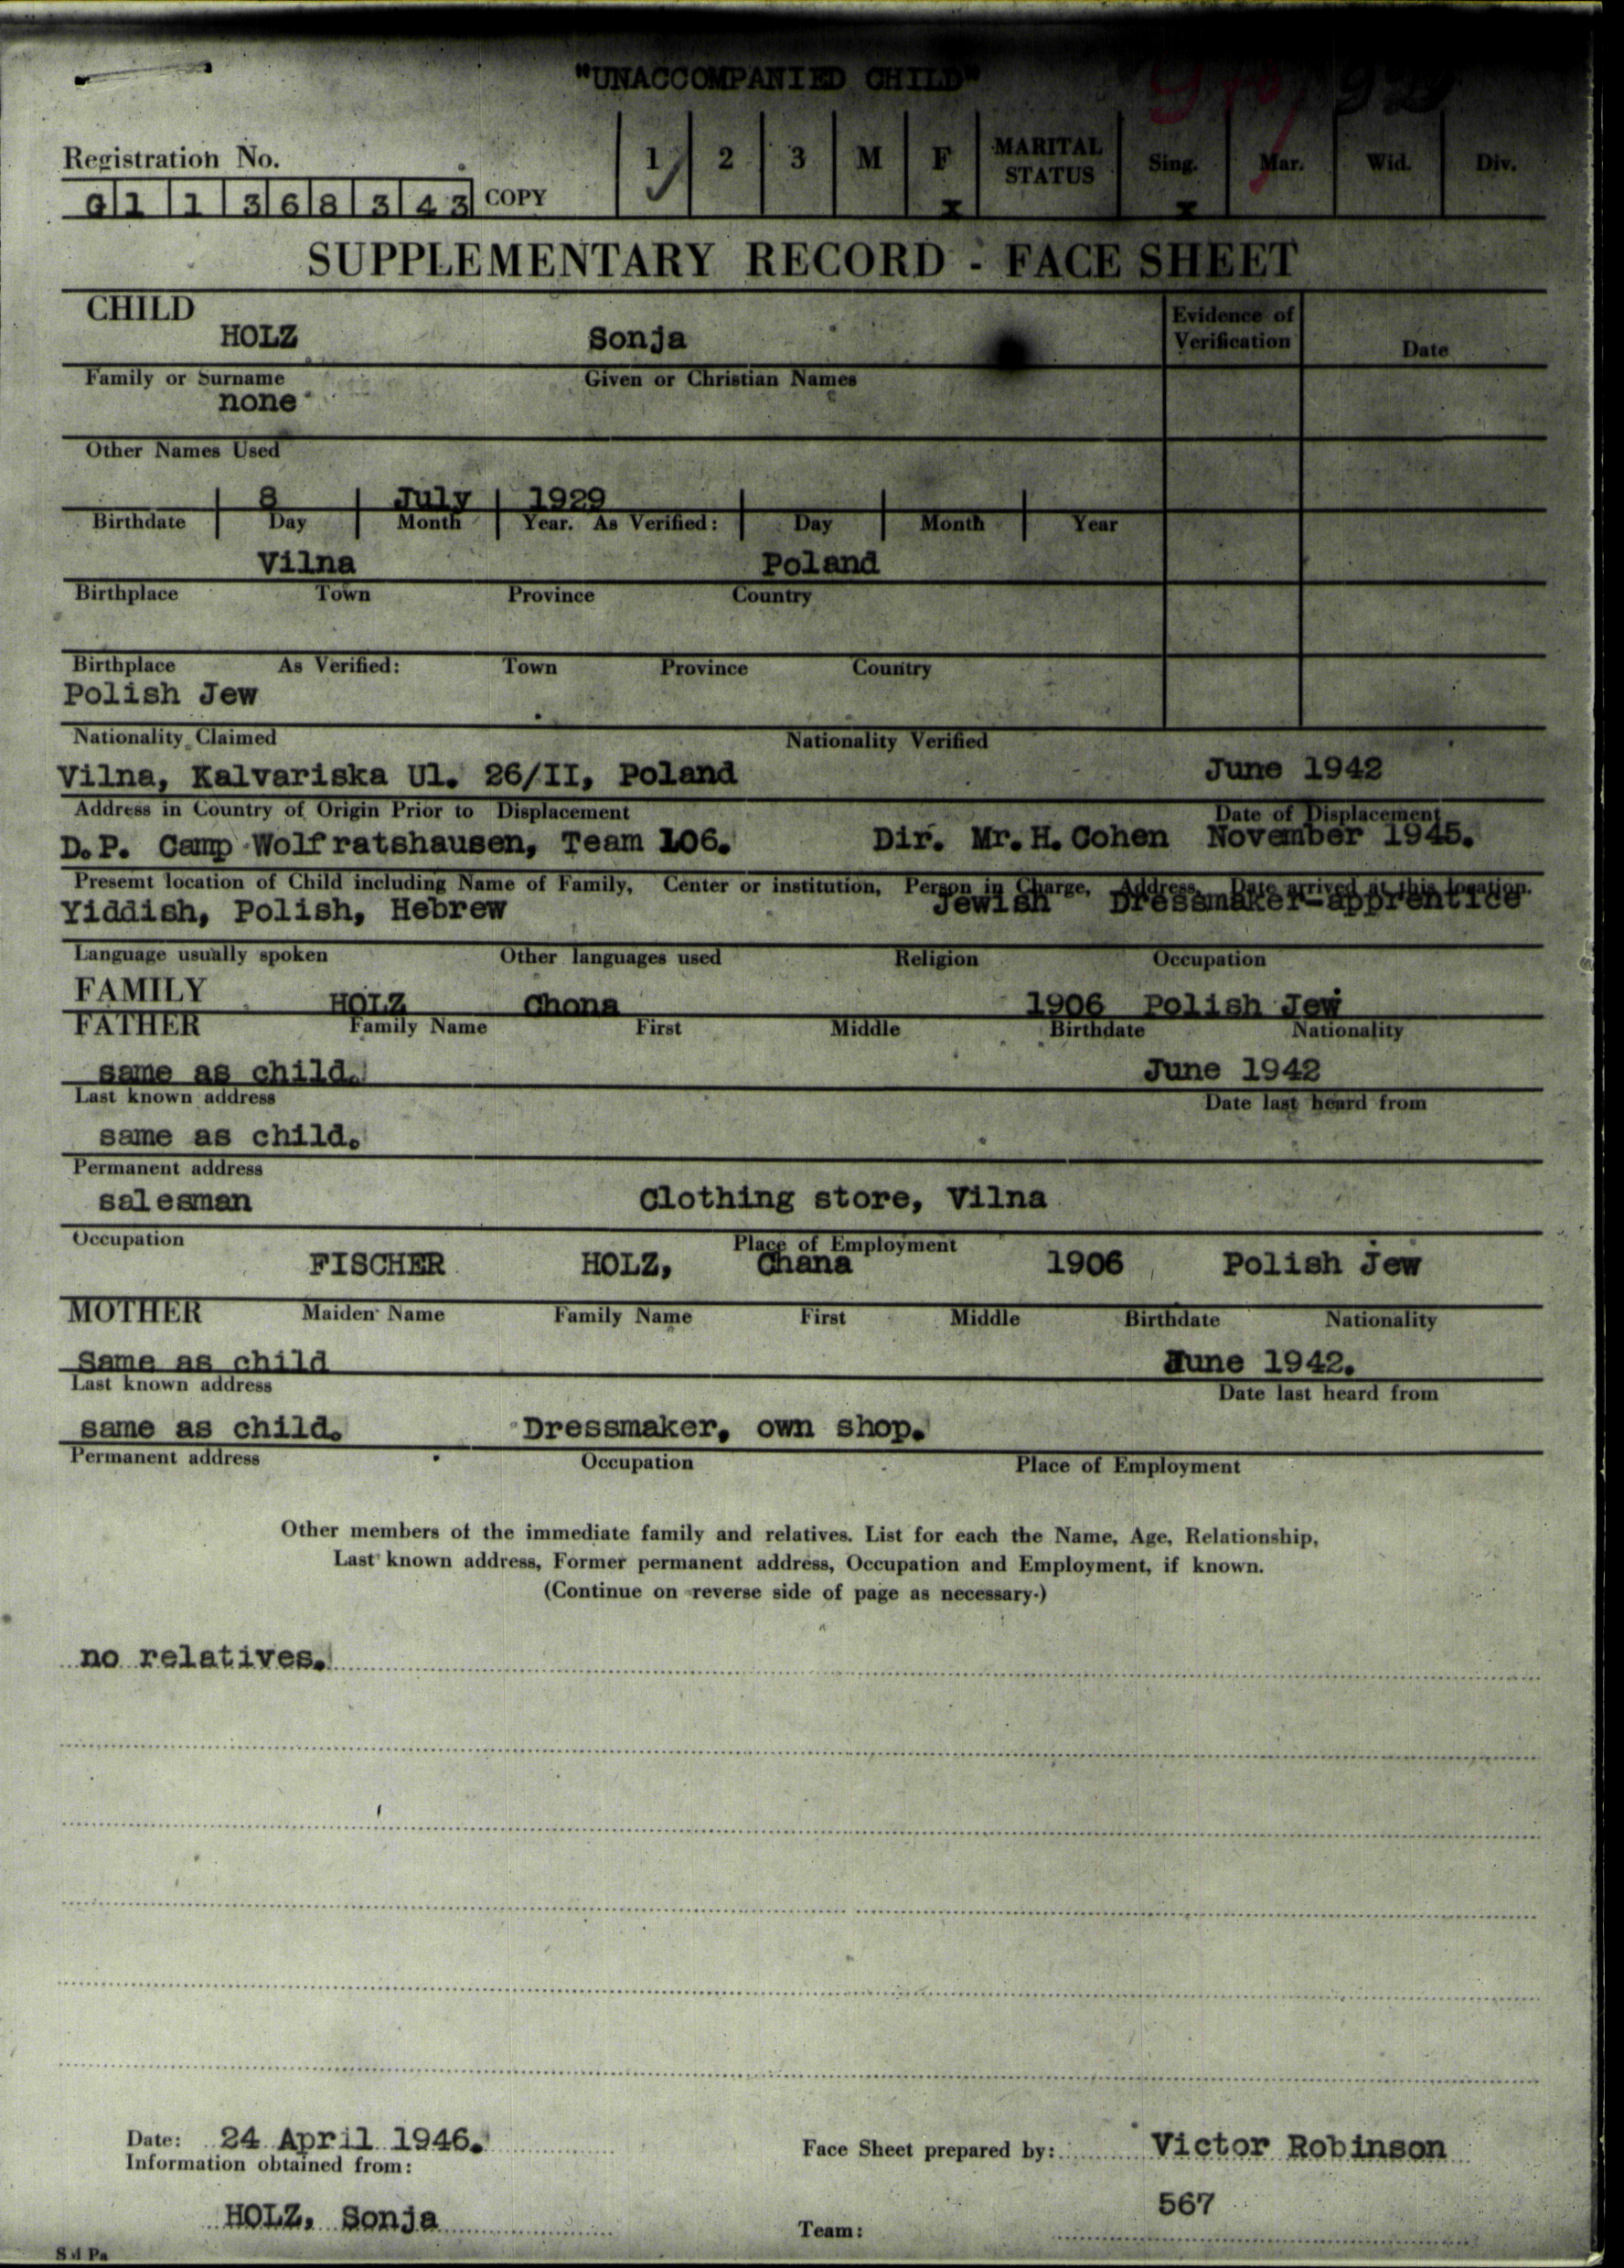 "UNACCOMPANIED CHILD"
Registration No.
G 1 1 3 6 8 3 4 3 COPY
1 2 3 M F MARITAL STATUS Sing. Mar. Wid. Div.
x x
SUPPLEMENTARY RECORD - FACE SHEET
CHILD
Evidence of Verification Date
HOLZ Sonja
Family or Surname Given or Christian Names
none
Other Names Used
8 July 1929
Birthdate Day Month Year. As Verified: Day Month Year
Vilna Poland
Birthplace Town Province Country
Birthplace As Verified: Town Province Country
Polish Jew
Nationality Claimed Nationality Verified
Vilna, Kalvariska Ul. 26/II, Poland June 1942
Address in Country of Origin Prior to Displacement Date of Displacement
D.P. Camp Wolfratshausen, Team 106. Dir. Mr. H. Cohen November 1945.
Presemt location of Child including Name of Family, Center or institution, Person in Charge, Address, Date arrived at this location.
Yiddish, Polish, Hebrew Jewish Dressmaker-apprentice
Language usually spoken Other languages used Religion Occupation
FAMILY
HOLZ Chona 1906 Polish Jew
FATHER Family Name First Middle Birthdate Nationality
same as child. June 1942
Last known address Date last heard from
same as child.
Permanent address
salesman Clothing store, Vilna
Occupation Place of Employment
FISCHER HOLZ, Chana 1906 Polish Jew
MOTHER Maiden Name Family Name First Middle Birthdate Nationality
Same as child June 1942.
Last known address Date last heard from
same as child. Dressmaker, own shop.
Permanent address Occupation Place of Employment
Other members of the immediate family and relatives. List for each the Name, Age, Relationship,
Last known address, Former permanent address, Occupation and Employment, if known.
(Continue on reverse side of page as necessary.)
no relatives.
Date: 24 April 1946. Face Sheet prepared by: Victor Robinson
Information obtained from:
HOLZ, Sonja
567
Team: